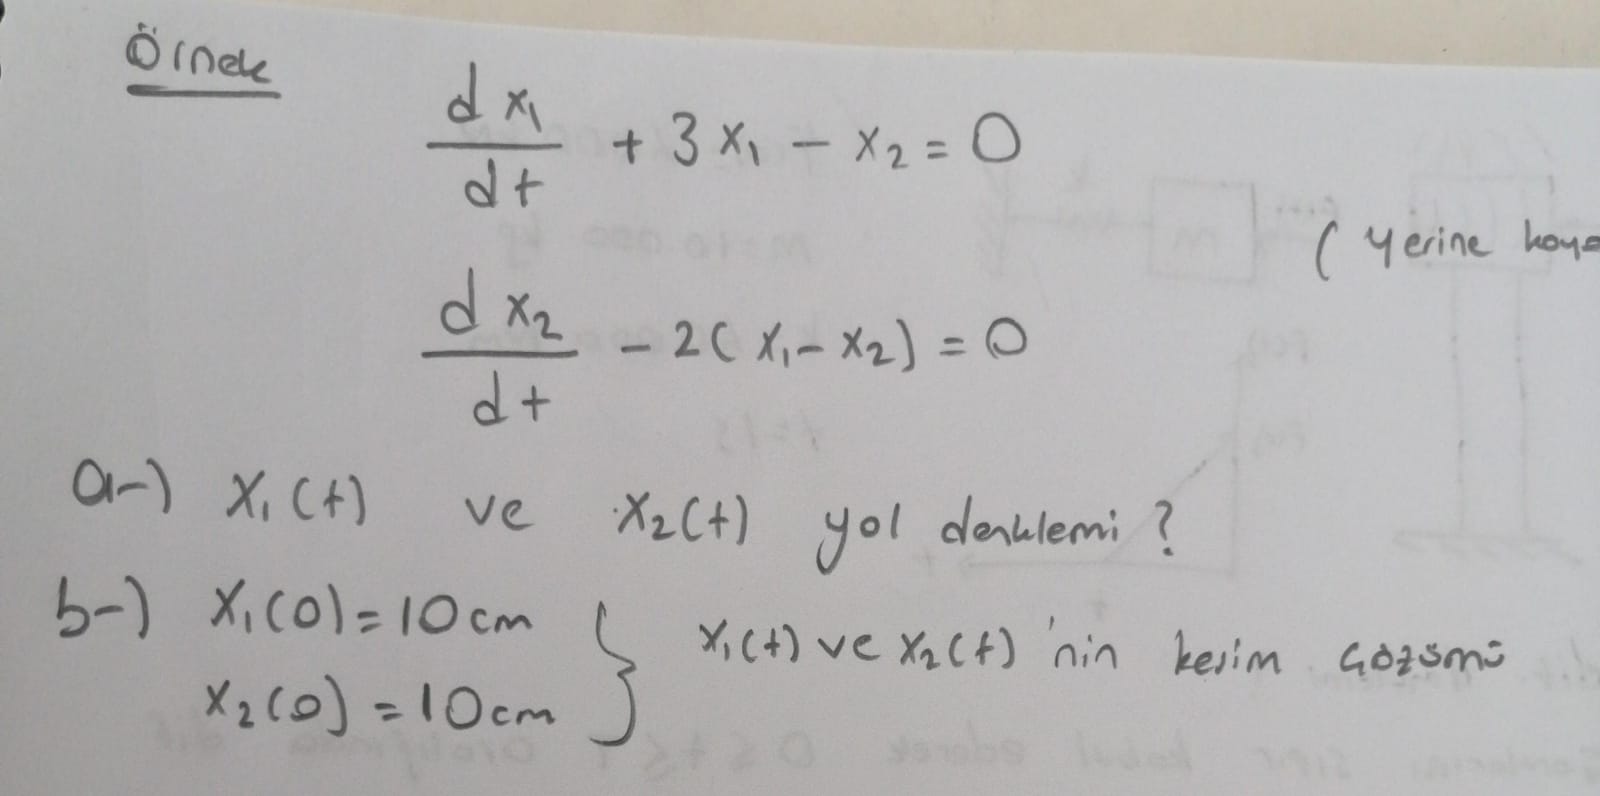 Örnek
dx₁/dt + 3x₁ - x₂ = 0
( yerine
dx₂/dt - 2(x₁ - x₂) = 0
a-) x₁(t) ve x₂(t) yol denklemi ?
b-) x₁(0) = 10 cm
x₂(0) = 10 cm
} x₁(t) ve x₂(t) 'nin kesim çözümü